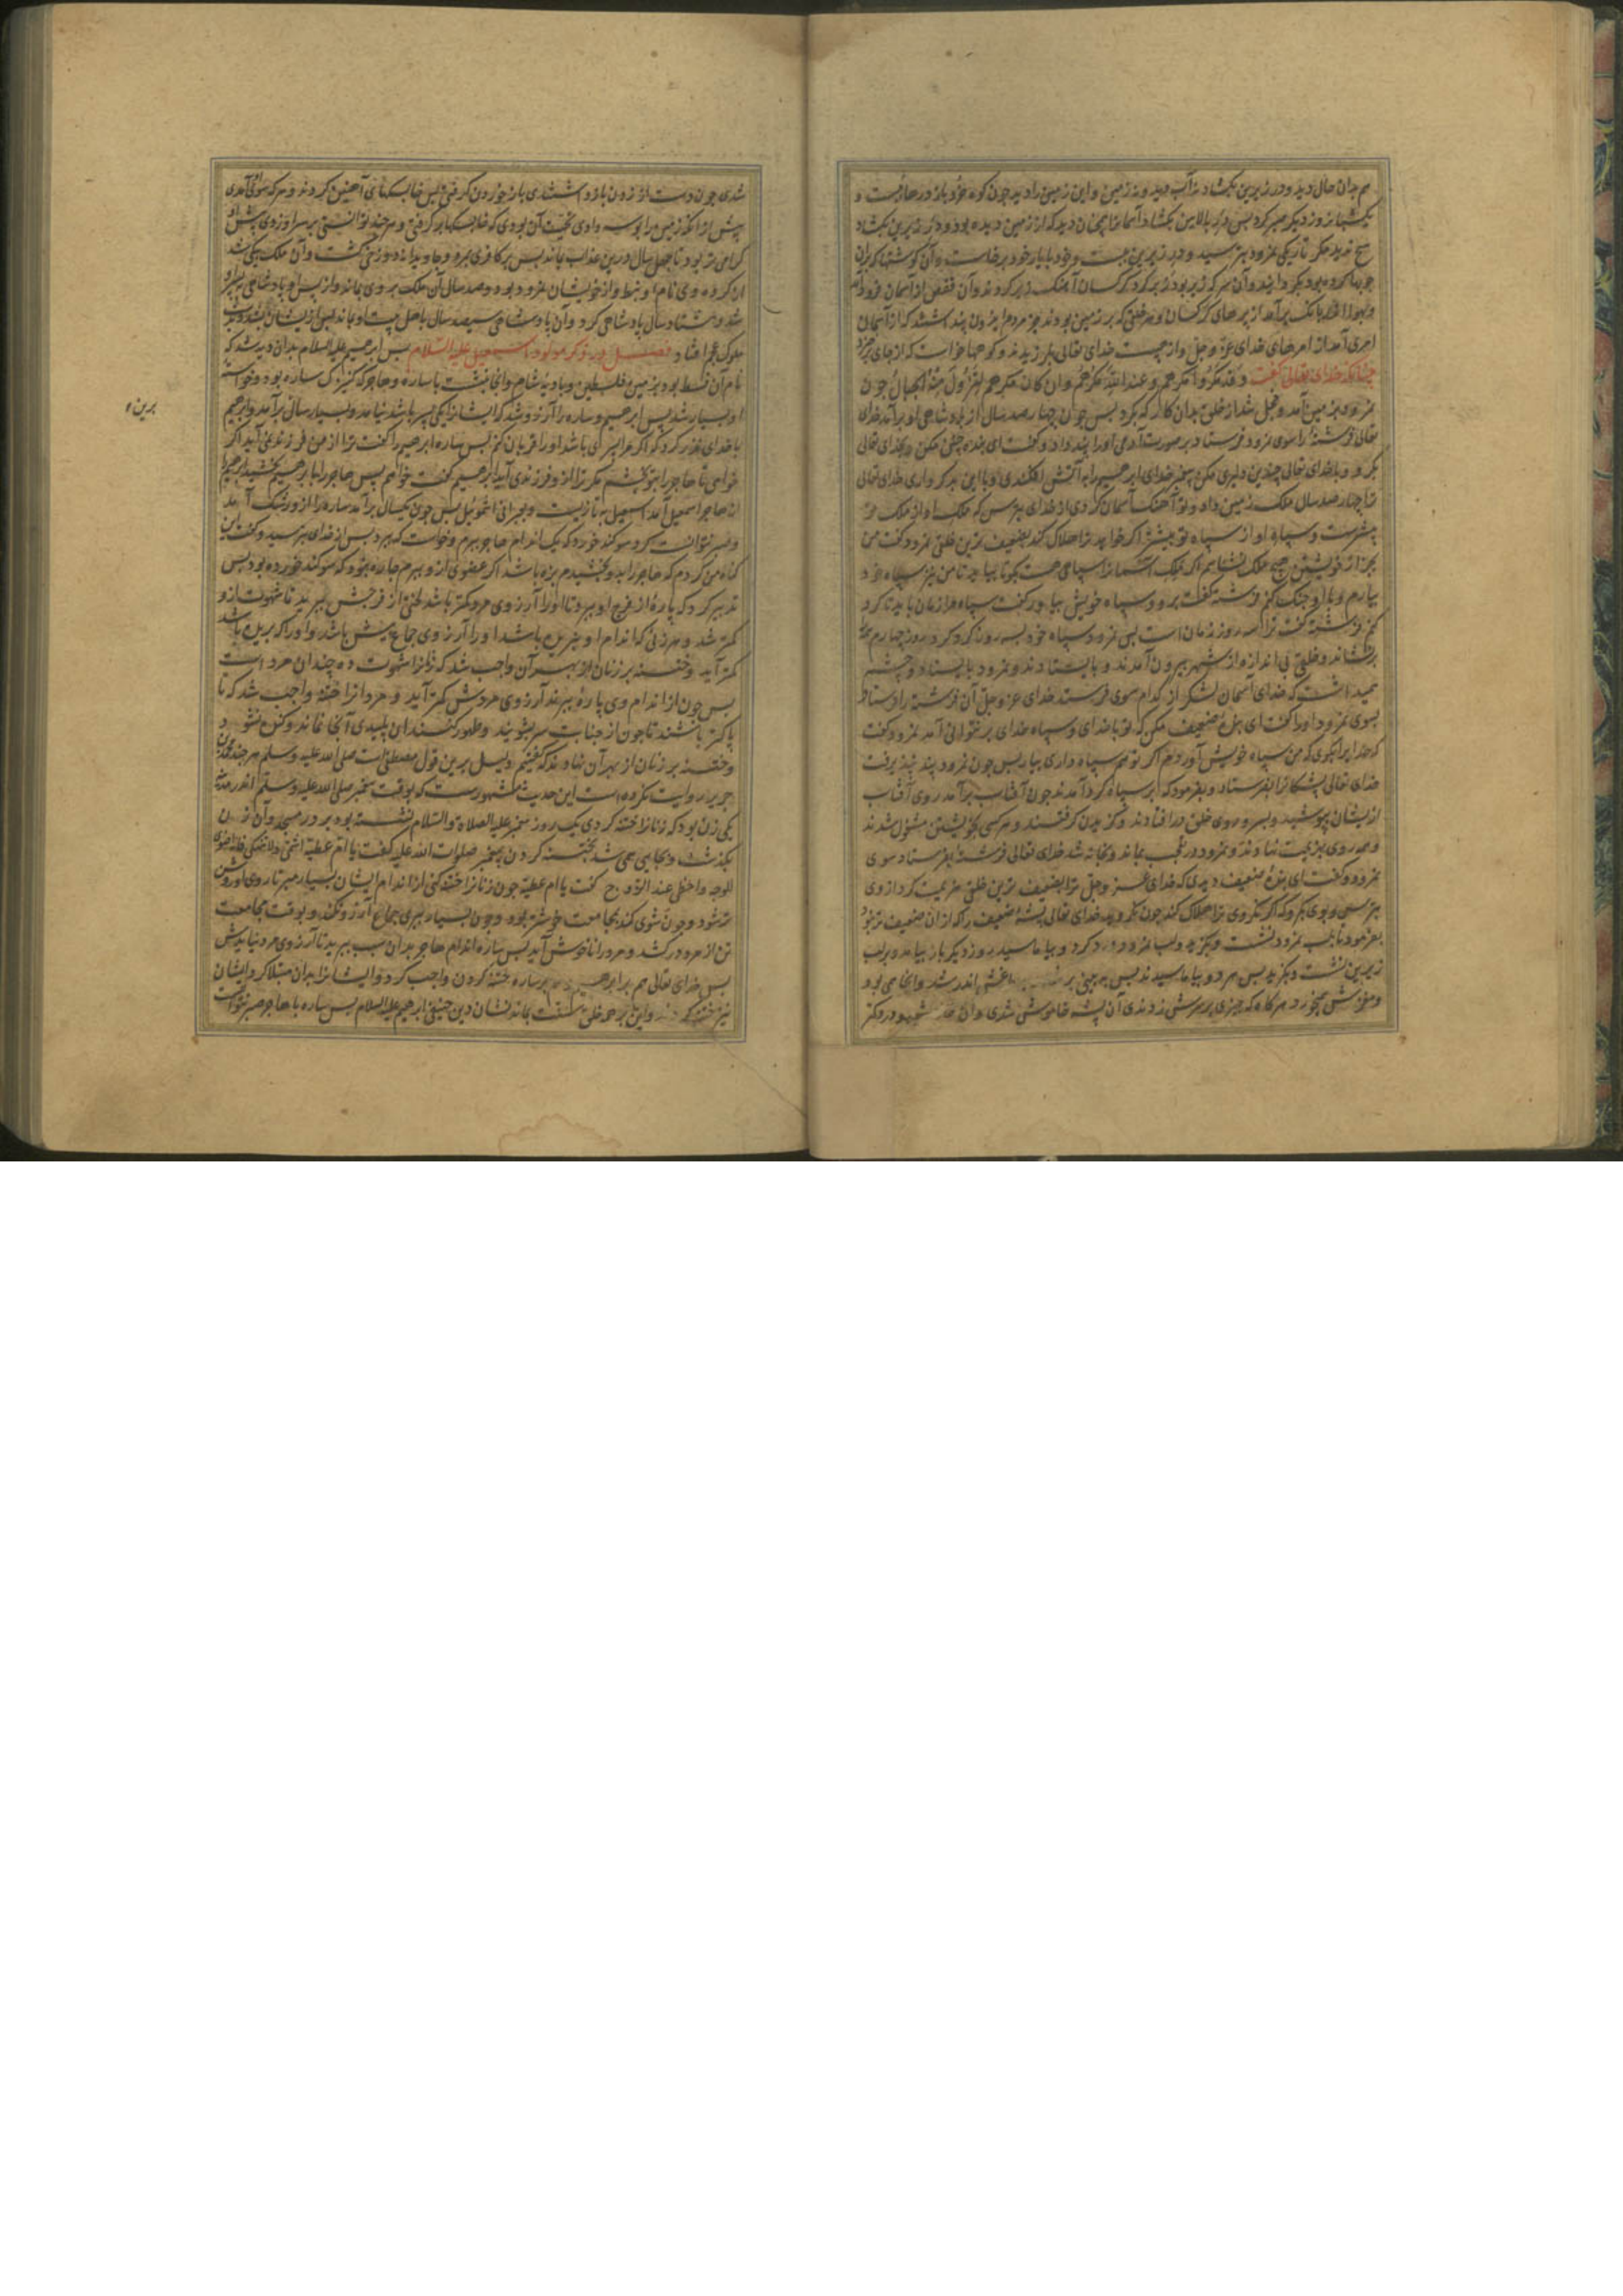 هم بدان حال دید و در زیرین بگشاد نه آب دید و نه زمین و این زمین را دید چون کوه خود باز در جا و
یک شبانروز دیگر صبر کرد پس در بالایین بگشاد آسمانرا همچنان دید که از زمین دیده بود و در زیرین بگشاد
هیچ ندید مگر تاریکی نمرود بترسید و در زیرین ببست و خود با یار خود برخاست و آن گوشتها که بران
چوبها کرده بود بگردانید و آن سر که زیر بود زبر کرد کرکسان آهنک زیر کردند و آن قفص از آسمان فرود آمد
و بانک برآمد از پرهای کرکسان و هر خلقی که بر زمین بودند جز مردم ایزدون پنداشتند که از آسمان
امری آمد از امرهای خدای عز و جل و از هیبت خدای تعالی بلرزیدند و کوهها خواست که از جای بجنبد
چنانکه خدای تعالی گفت وَقَد مَکَروا مَکرَهم وعند الله مکرهم وان کان مکرهم لتزول منه الجبال چون
نمرود بزمین آمد و خجل شد از خلق بدان کار که بکرد پس چون چهار صد سال از پادشاهی او برآمد خدای
تعالی فرشته را سوی نمرود فرستاد بر صورت آدمی او را پند داد و گفت ای بنده چنین مکن و بخدای تعالی
بکرو و با خدای تعالی چندین دلیری مکن پیغمبر خدای ابرهیم را به آتش افکندی و با این بد کرداری خدای تعالی
ترا چهار صد سال ملک زمین داد و تو آهنک آسمان کردی از خدای بترس که ملک او از ملک تو
بیشترست و سپاه او از سپاه تو بیشتر اگر خواهد ترا هلاک کند بضعیف ترین خلق نمرود گفت من
بجز از خویشتن هیچ ملک نشناسم اگر ملک آسمانرا سپاهی هست بگو تا بیاید تا من نیز سپاه خود
بیارم و با او جنک کنم فرشته گفت برو و سپاه خویش بیاور گفت سپاه مرا زمان باید تا کرد
کنم فرشته گفت ترا سه روز زمان است پس نمرود سپاه خود بسه روز کرد کرد روز چهارم همه
برنشاند و خلقی بی انداز و از شهر بیرون آمدند و بایستادند و نمرود بایستاد و چشم
همیداشت که خدای آسمان لشکر از کدام سوی فرستد خدای عز و جل آن فرشته را فرستاد
بسوی نمرود او را گفت ای بنده ضعیف مکن که تو با خدای و سپاه خدای برنتوانی آمد نمرود گفت
که خدا را بگوی که من سپاه خویش آوردم اگر تو هم سپاه داری بیار پس چون نمرود پند نپذیرفت
خدای تعالی پشکانرا بفرستاد و بفرمود که ابر سپاه کرد آمدند چون آفتاب برآمد روی آفتاب
از یشان بپوشید و بسر و روی خلق در افتادند و گزیدن گرفتند و هر کسی بخویشتن مشغول شدند
و همه روی بهزیمت نهادند و نمرود در تعجب بماند و بخانه شد خدای تعالی فرشته را بفرستاد سوی
نمرود و گفت ای بنده ضعیف دیدی که خدای عز و جل ترا بضعیف ترین خلق هزیمت کرد از وی
بترس و بوی بکرو که اگر نکروی ترا هلاک کند چون نکروید خدای تعالی پشه ضعیف را که از آن ضعیف تر نبود
بفرمود تا بلب نمرود نشست و بگزید و لب نمرود درد کرد و بیاماسید روز دیگر باز بیامد و بر لب
زیرین نشست و بگزید پس هر دو بیاماسیدند پس به بینی بر شد اندر شد و آنجا همی بود
و مغزش همیخورد هرگاه که چیزی بر سرش زدندی آن پشه خاموش شدی و آن درد کمتر
شدی چون دست از زدن باز داشتندی باز خوردن گرفتی پس خایسکهای آهنین کردند و هر که سوی او آمدی
پیش از آنکه زمین را بوسه دادی نخست آن بودی که خایسک را برگرفتی و هر چند توانستی بر سر او زدی پیش او
گرامی تر بود تا چهل سال درین عذاب بماند پس بر کافری بمرد و جاویدانه دوزخی گشت و آن ملک بیکی شد
از گروه وی نام او نبط و از خویشان نمرود بود و صد سال آن ملک بر وی بماند و از پس او پادشاهی
شد و هشتاد سال پادشاهی کرد و آن پادشاهی سیصد سال باهل بیت او بماند پس از یشان بشد و به
ملوک عجم افتاد فصل در ذکر مولود اسمعیل علیه السلام پس ابرهیم علیه السلام بدان دیه شد که
نام آن قسط بود بزمین فلسطین و بادیه شام و آنجا بنشست با ساره و هاجر که کنیزک ساره بود و خواسته
او بسیار شد پس ابرهیم و ساره را آرزو شد که ایشانرا یکی پسر باشد نیامد و بسیار سال برآمد و ابرهیم
با خدای نذر کرد که اگر مرا پسری باشد او را قربان کنم پس ساره ابرهیم را گفت ترا از من فرزند نمی آید اگر
خواهی تا هاجر را بتو بخشم مگر ترا ازو فرزندی آید ابرهیم گفت خواهم پس هاجر را بابرهیم بخشید ابرهیم را
از هاجر اسمعیل آمد اسمعیل به تازیست و بعبرانی اشموئیل پس چون یکسال برآمد ساره را ازو رشک آمد
و صبر نتوانست کرد سوگند خورد که یک اندام هاجر ببرم و خواست که ببرد پس از خدای بترسید و گفت این
گناه من کردم که هاجر را بدو بخشیدم بزه باشد اگر عضوی ازو ببرم چاره نبود که سوگند خورده بود پس
تدبیر کرد که پاره از فرج او ببرد تا او را آرزوی مرد کمتر باشد لختی از فرجش ببرید تا شهوت ازو
کمتر شد و هر زنی که اندام او بنریده باشد او را آرزوی جماع بیش باشد و او را که بریده باشد
کمتر آید و ختنه بر زنان از بهر آن واجب شد که زنانرا شهوت ده چندان مرد است
پس چون از اندام وی پاره ببرند آرزوی مردوش کمتر آید و مردانرا ختنه واجب شد که تا
پاکتر باشند تا چون از جنابت سر بشویند و طهور کنند ان پلیدی آنجا نماند و کنده نشود
و ختنه بر زنان از بهر آن نهادند که گفتیم دلیل برین قول مصطفی است صلی الله علیه و سلم هر چند محمد بن
جریر روایت نکرده است این حدیث مشهورست که بوقت پیغمبر صلی الله علیه و سلم اندر مدینه
یکی زن بود که زنانرا ختنه کردی یک روز پیغمبر علیه الصلاة والسلام نشسته بود بر در مسجد و آن زن
بگذشت و بجایی همی شد بختنه کردن پیغمبر صلوات الله علیه گفت یا ام عطیة اشمی ولا تنهکی فانه اضوی
للوجه واحظی عند الزوج گفت یا ام عطیه چون زنانرا ختنه کنی از اندام ایشان بسیار مبر تا روی او روشن
تر شود و چون شوی کند بجامعت خوشتر بود و چون بسیار ببری جماع آرزو نکند و بوقت مجامعت
تن از مرد درکشد و مرد را ناخوش آید پس ساره اندام هاجر بدان سبب ببرید تا آرزوی مرد نیایدش
پس خدای تعالی هم بر ابرهیم و هم بر ساره ختنه کردن واجب کرد و ایشانرا بدان مبتلا کرد و ایشان
نیز ختنه کردند و این بر خلق سنت بماند نشان دین حنیفی ابرهیم علیه السلام پس ساره با هاجر صبر نتوانست
برین